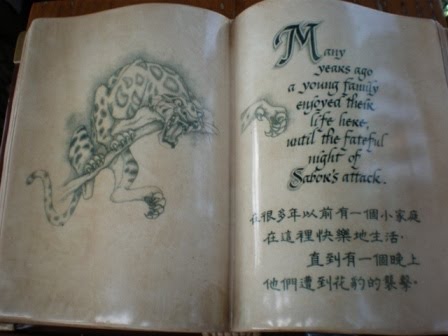 Many
years ago
a young family
enjoyed their
life here,
until the fateful
night of
Sabor's attack.
在很多年以前有一個小家庭
在這裡快樂地生活.
直到有一個晚上
他們遭到花豹的襲擊.